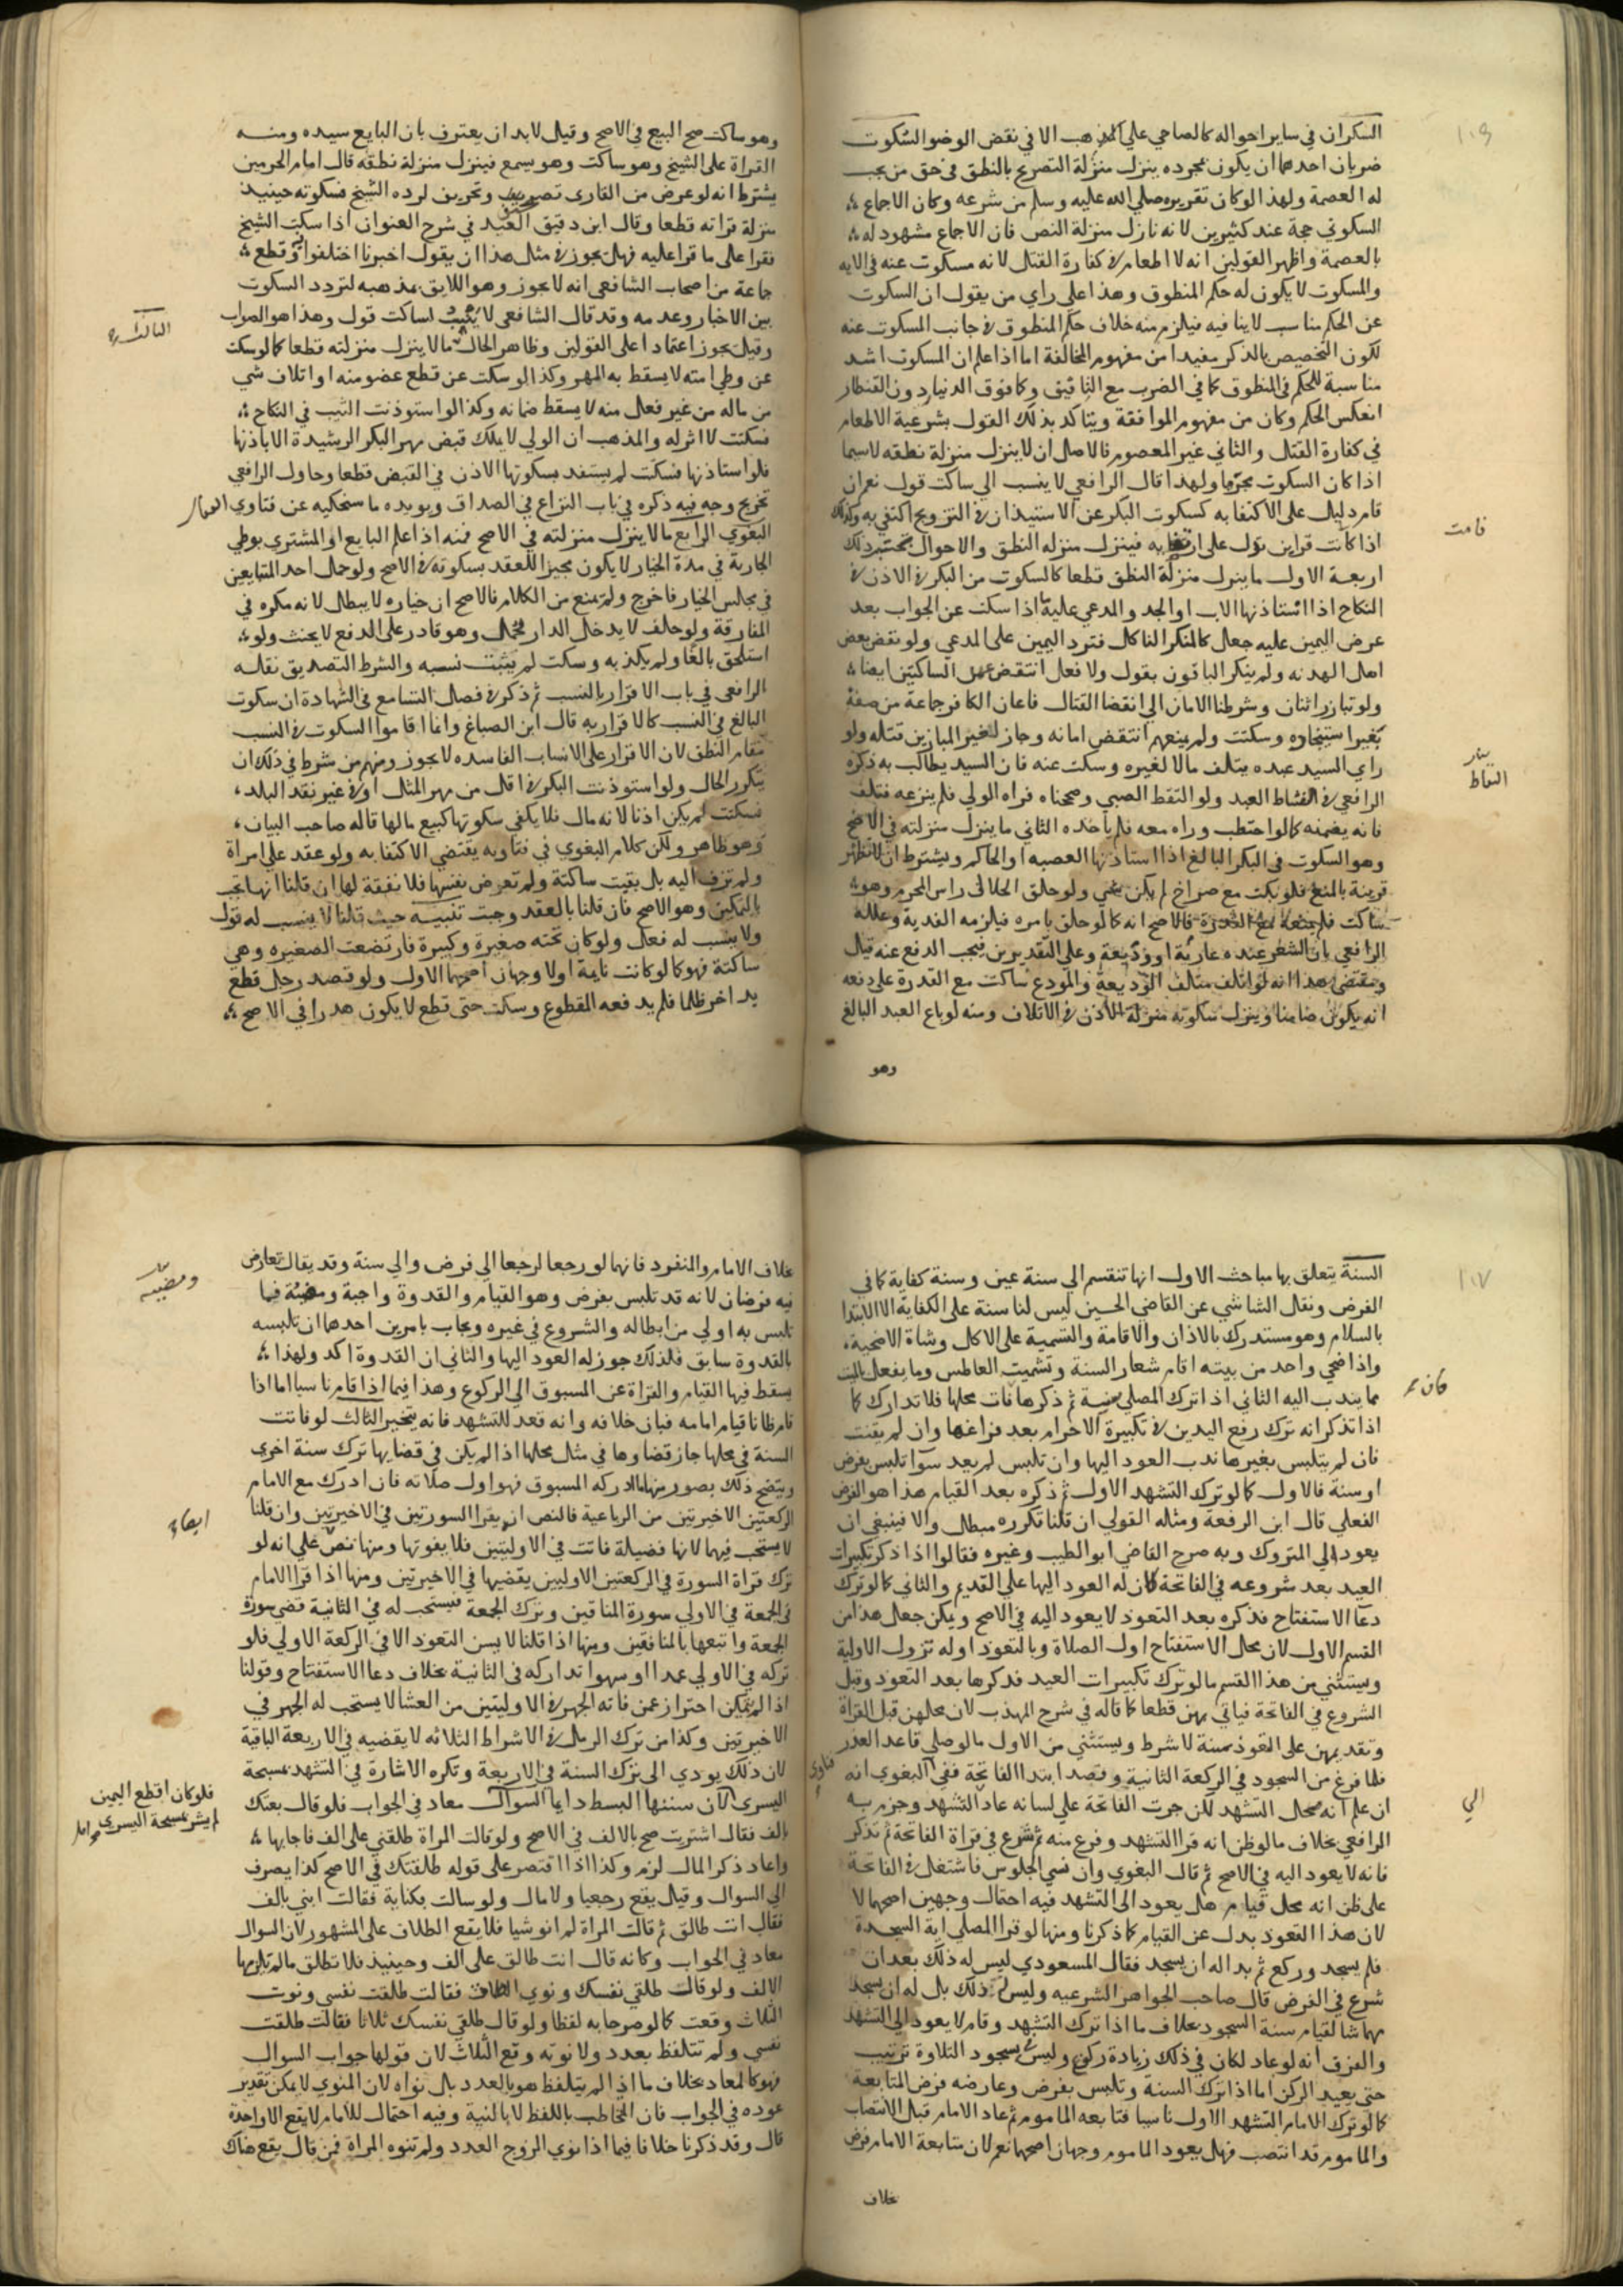 السكران في ساير احواله كالصاحي علي المذهب الا في نقض الوضو السكوت
ضربان احدهما ان يكون بمجرده ينزل منزلة التصريح بالنطق في حق من يجب
له العصمة ولهذا لو كان تقريره صلي الله عليه وسلم من شرعه وكان الاجماع
السكوتي حجة عند كثيرين لانه نازل منزلة النص فان الاجماع مشهود له
بالعصمة واظهر القولين انه لا اطعام في كفارة القتل لانه مسكوت عنه في الايه
والمسكوت لا يكون له حكم المنطوق وهذا علي راي من يقول ان السكوت
عن الحكم مناسب لا ينافيه فيلزم منه خلاف حكم المنطوق في جانب المسكوت عنه
لكون التخصيص بالذكر مفيدا من مفهوم المخالفة اما اذا علم ان المسكوت اشد
مناسبة للحكم في المنطوق كما في الضرب مع التافيف وكما فوق الدنيار دون القنطار
انعكس الحكم وكان من مفهوم الموافقة ويتاكد بذلك القول بشرعية الاطعام
في كفارة القتل والثاني غير المعصوم فالاصل ان لا ينزل منزلة نطقه لاسيما
اذا كان السكوت محرما ولهذا قال الرافعي لا ينسب الي ساكت قول نعم ان
قام دليل علي الاكتفا به كسكوت البكر عن الاستيذان في التزويج اكتفي به وكذلك
قامت
اذا كانت قراين تدل علي به فينزل منزله النطق والاحوال بحسب ذلك
اربعة الاول ما ينزل منزلة النطق قطعا كالسكوت من البكر في الاذن في
النكاح اذا استاذنها الاب او الجد والمدعي عليه اذا سكت عن الجواب بعد
عرض اليمين عليه جعل كالمنكر الناكل فترد اليمين علي المدعي ولو نقض بعض
اهل الهدنه ولم ينكر الباقون بقول ولا فعل انتقض الساكتين ايضا
ولو تبارز اثنان وشرطنا الامان الي انقضا القتال فاعان الكافر جماعة من صفة
بغير استنجاده وسكت ولم يمنعهم انتقض امانه وجاز لغير المبارزين قتله ولو
راي السيد عبده يتلف مالا لغيره وسكت عنه فان السيد يطالب به ذكره
الرافعي في العبد ولو التقط الصبي وصححناه فراه الولي فلم ينزعه فتلف
التقاط
فانه يضمنه كما لو احتطب وراه معه فلم ياخذه الثاني ما ينزل منزلته في الاصح
وهو السكوت في البكر البالغ اذا استاذنها العصبه او الحاكم ويشترط ان لا تظهر
قرينة بالمنع فلو بكت مع صراخ لم يكن ولو حلق الحلاق راس المحرم وهو
ساكت فلم يمنعه مع القدرة فالاصح انه كما لو حلق بامره فيلزمه الفدية وعلله
الرافعي بان الشعر عنده عارية او وديعة وعلي التقديرين فيجب الدفع عنه قيل
ومقتضي هذا انه لو اتلف متلف الوديعة والمودع ساكت مع القدرة علي دفعه
انه يكون ضامنا وينزل سكوته منزلة الاذن في الاتلاف ومنه لو باع العبد البالغ
وهو
وهو ساكت صح البيع في الاصح وقيل لابد ان يعترف بان البايع سيده ومنه
القراة علي الشيخ وهو ساكت وهو يسمع فينزل منزلة نطقه قال امام الحرمين
يشترط انه لو عرض من القاري تصحيف وتحريف لرده الشيخ فسكوته حينيذ
منزلة قراته قطعا وقال ابن دقيق العيد في شرح العنوان اذا سكت الشيخ
نقرا علي ما قرا عليه فهل يجوز في مثل هذا ان يقول اخبرنا اختلفوا وقطع
جماعة من اصحاب الشافعي انه لا يجوز وهو اللايق بمذهبه لتردد السكوت
بين الاخبار وعدمه وقد قال الشافعي لا ينسب لساكت قول وهذا هو الصواب
وقيل يجوز اعتمادا علي القولين وظاهر الحال ما لا ينزل منزلته قطعا كما لو سكت
الثالث
عن وطي امته لا يسقط به المهر وكذا لو سكت عن قطع عضو منه او اتلاف شي
من ماله من غير فعل منه لا يسقط ضمانه وكذا لو استوذنت الثيب في النكاح
فسكتت لا اثر له والمذهب ان الولي لا يملك قبض مهر البكر الرشيدة الا باذنها
فلو استاذنها فسكتت لم يستفد بسكوتها الاذن في القبض قطعا وحاول الرافعي
تخريج وجه فيه ذكره في باب النزاع في الصداق ويويده ما سنحكيه عن فتاوي
البغوي الرابع ما لا ينزل منزلته في الاصح فمنه اذا علم البايع او المشتري بوطي
الجارية في مدة الخيار لا يكون مجيزا للعقد بسكوته في الاصح ولو حمل احد المتبايعين
في مجلس الخيار فاخرج ولم يمنع من الكلام فالاصح ان خياره لا يبطل لانه مكره في
المفارقة ولو حلف لا يدخل الدار فحمل وهو قادر علي الدفع لا يحنث ولو
استلحق بالغا ولم يكذبه وسكت لم يثبت نسبه والشرط التصديق نقله
الرافعي في باب الاقرار بالنسب ثم ذكر في فصل التسامع في الشهادة ان سكوت
البالغ في النسب كالاقرار به قال ابن الصباغ وانما اقاموا السكوت في النسب
مقام النطق لان الاقرار علي الانساب الفاسده لا يجوز ومنهم من شرط في ذلك ان
يتكرر الحال ولو استوذنت البكر في اقل من مهر المثل او في غير نقد البلد
فسكتت لم يكن اذنا لانه مال فلا يكفي سكوتها كبيع مالها قاله صاحب البيان
وهو ظاهر ولكن كلام البغوي في فتاويه يقتضي الاكتفا به ولو عقد علي امراة
ولم تزف اليه بل بقيت ساكتة ولم تعرض نفسها فلا نفقة لها ان قلنا انها تجب
بالتمكين وهو الاصح فان قلنا بالعقد وجبت تنبيه حيث قلنا لا ينسب له قول
ولا ينسب له فعل ولو كان تحته صغيرة وكبيرة فارتضعت الصغيره وهي
ساكتة فهو كما لو كانت نايمة اولا وجهان اصحهما الاول ولو قصد رجل قطع
يد اخر ظلما فلم يدفعه المقطوع وسكت حتى قطع لا يكون هدرا في الاصح
السنة يتعلق بها مباحث الاول انها تنقسم الي سنة عين وسنة كفاية كما في
١٠٧
الفرض ونقل الشاشي عن القاضي الحسين ليس لنا سنة علي الكفاية الا الابتدا
بالسلام وهو مستدرك بالاذان والاقامة والتسمية علي الاكل وشاة الاضحية
واذا ضحي واحد من بيته اقام شعار السنة وتشميت العاطس وما يفعل بالميت
مما يندب اليه الثاني اذا ترك المصلي سنة ثم ذكرها فات محلها فلا تدارك كما
اذا تذكر انه ترك رفع اليدين في تكبيرة الاحرام بعد فراغها وان لم يفت
فان لم يتلبس بغيرها ندب العود اليها وان تلبس لم يعد سوا تلبس بفرض
او سنة فالاول كما لو ترك التشهد الاول ثم ذكره بعد القيام هذا هو الفرض
الفعلي قال ابن الرفعة ومثله القولي ان قلنا تكرره مبطل والا فينبغي ان
يعود الي المتروك وبه صرح القاضي ابو الطيب وغيره فقالوا اذا ذكر تكبيرات
العيد بعد شروعه في الفاتحة كان له العود اليها علي القديم والثاني كما لو ترك
دعا الاستفتاح فذكره بعد التعوذ لا يعود اليه في الاصح ويمكن جعل هذا من
القسم الاول لان محل الاستفتاح اول الصلاة وبالتعوذ اوله تزول الاولية
ويستثني من هذا القسم ما لو ترك تكبيرات العيد فذكرها بعد التعوذ وقبل
الشروع في الفاتحة فياتي بهن قطعا كما قاله في شرح المهذب لان محلهن قبل القراة
وتقديمهن علي التعوذ سنة لا شرط ويستثني من الاول ما لو صلي قاعد العذر
فلما فرغ من السجود في الركعة الثانية وقصد ابتدا الفاتحة ففي البغوي انه
فتاوي
ان علم انه محل التشهد لكن جرت الفاتحة علي لسانه عاد التشهد وجزم به
الي
الرافعي بخلاف ما لو ظن انه قرا التشهد وفرغ منه ثم شرع في قراة الفاتحة ثم تذكر
فانه لا يعود اليه في الاصح ثم قال البغوي وان نسي الجلوس فاشتغل في الفاتحة
علي ظن انه محل قيام هل يعود الي التشهد فيه احتمال وجهين اصحهما لا
لان هذا القعود بدل عن القيام كما ذكرنا ومنها لو قرا المصلي اية السجدة
فلم يسجد وركع ثم بدا له ان يسجد فقال المسعودي ليس له ذلك بعد ان
شرع في الفرض قال صاحب الجواهر الشرعيه وليس ذلك بل له ان يسجد
مهما شا لقيام سنة السجود بخلاف ما اذا ترك التشهد وقام لا يعود الي التشهد
والفرق انه لو عاد لكان في ذلك زيادة ركن وليس في سجود التلاوة ترتيب
حتي يعيد الركن اما اذا ترك السنة وتلبس بفرض وعارضه فرض المتابعة
كما لو ترك الامام التشهد الاول ناسيا فتابعه الماموم ثم عاد الامام قبل الانتصاب
والماموم قد انتصب فهل يعود الماموم وجهان اصحهما نعم لان متابعة الامام فرض
خلاف
بخلاف الامام والمنفرد فانهما لو رجعا لرجعا الي فرض والي سنة وقد يقال تعارض
فيه فرضان لانه قد تلبس بفرض وهو القيام والقدوة واجبة ومضيه فيما
ومضيه
تلبس به اولي من ابطاله والشروع في غيره ويجاب بامرين احدهما ان تلبسه
بالقدوة سابق فلذلك جوز له العود اليها والثاني ان القدوة اكد ولهذا
يسقط فيها القيام والقراة عن المسبوق الي الركوع وهذا فيما اذا قام ناسيا اما اذا
قام ظانا قيام امامه فبان خلافه وانه قعد للتشهد فانه يتخير الثالث لو فاتت
السنة في محلها جاز قضاوها في مثل محلها اذا لم يكن في قضايها ترك سنة اخري
ويتضح ذلك بصور منها ما ادركه المسبوق فهو اول صلاته فان ادرك مع الامام
الركعتين الاخيرتين من الرباعية فالنص انه يقرا السورتين في الاخيرتين وان قلنا
ايضا
لا يستحب فيهما لانها فضيلة فاتت في الاوليتين فلا يفوتها ومنها نص علي انه لو
ترك قراة السورة في الركعتين الاوليين يقضيها في الاخيرتين ومنها اذا قرا الامام
في الجمعة في الاولي سورة المنافقين وترك الجمعة فيستحب له في الثانية قضي سورة
الجمعة واتبعها بالمنافقين ومنها اذا قلنا لا يسن التعوذ الا في الركعة الاولي فلو
تركه في الاولي عمدا او سهوا تداركه في الثانية بخلاف دعا الاستفتاح وقولنا
اذا لم يكن احتراز عمن فاته الجهر في الاوليتين من العشا لا يستحب له الجهر في
الاخيرتين وكذا من ترك الرمل في الاشراط الثلاثه لا يقضيه في الاربعة الباقية
لان ذلك يودي الي ترك السنة في الاربعة وتكره الاشارة في التشهد بمسبحة
اليسري لان سننها البسط دايما السوال معاد في الجواب فلو قال بعتك
فلو كان اقطع اليمين
لم يشر بمسبحة اليسري
بالف فقال اشتريت صح بالالف في الاصح ولو قالت المراة طلقني علي الف فاجابها
واعاد ذكر المال لزم وكذا اذا اقتصر علي قوله طلقتك في الاصح كذا يصرف
الي السوال وقيل يقع رجعيا ولا مال ولو سالت بكناية فقالت ابني بالف
فقال انت طالق ثم قالت المراة لم انو شيا فلا يقع الطلاق علي المشهور لان السوال
معاد في الجواب وكانه قال انت طالق علي الف وحينيذ فلا تطلق ما لم تلزمها
الالف ولو قالت طلقي نفسك ونوي الطلاق فقالت طلقت نفسي ونوت
الثلاث وقعت كما لو صرحا به لفظا ولو قال طلقي نفسك ثلاثا فقالت طلقت
نفسي ولم تتلفظ بعدد ولا نوته وقع الثلاث لان قولها جواب السوال
فهو كالمعاد بخلاف ما اذا لم يتلفظ هو بالعدد بل نواه لان المنوي لا يمكن تقدير
عوده في الجواب فان التخاطب باللفظ لا بالنية وفيه احتمال للامام لا يقع الا واحدة
قال وقد ذكرنا خلافا فيما اذا نوي الزوج العدد ولم تنوه المراة فمن قال يقع هناك